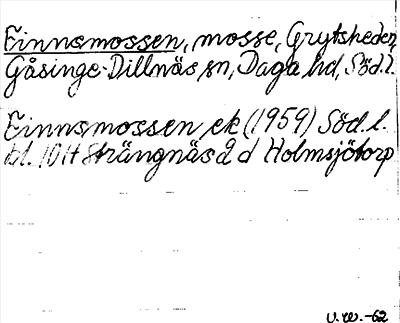 Finnsmossen, mosse, Grytsheden,
Gåsinge-Dillnäs sn, Daga hd, Söd.l.
Finnsmossen ek (1959) Söd.l.
bl. 10H Strängnäs 2 d Holmsjötorp
V.W.-62